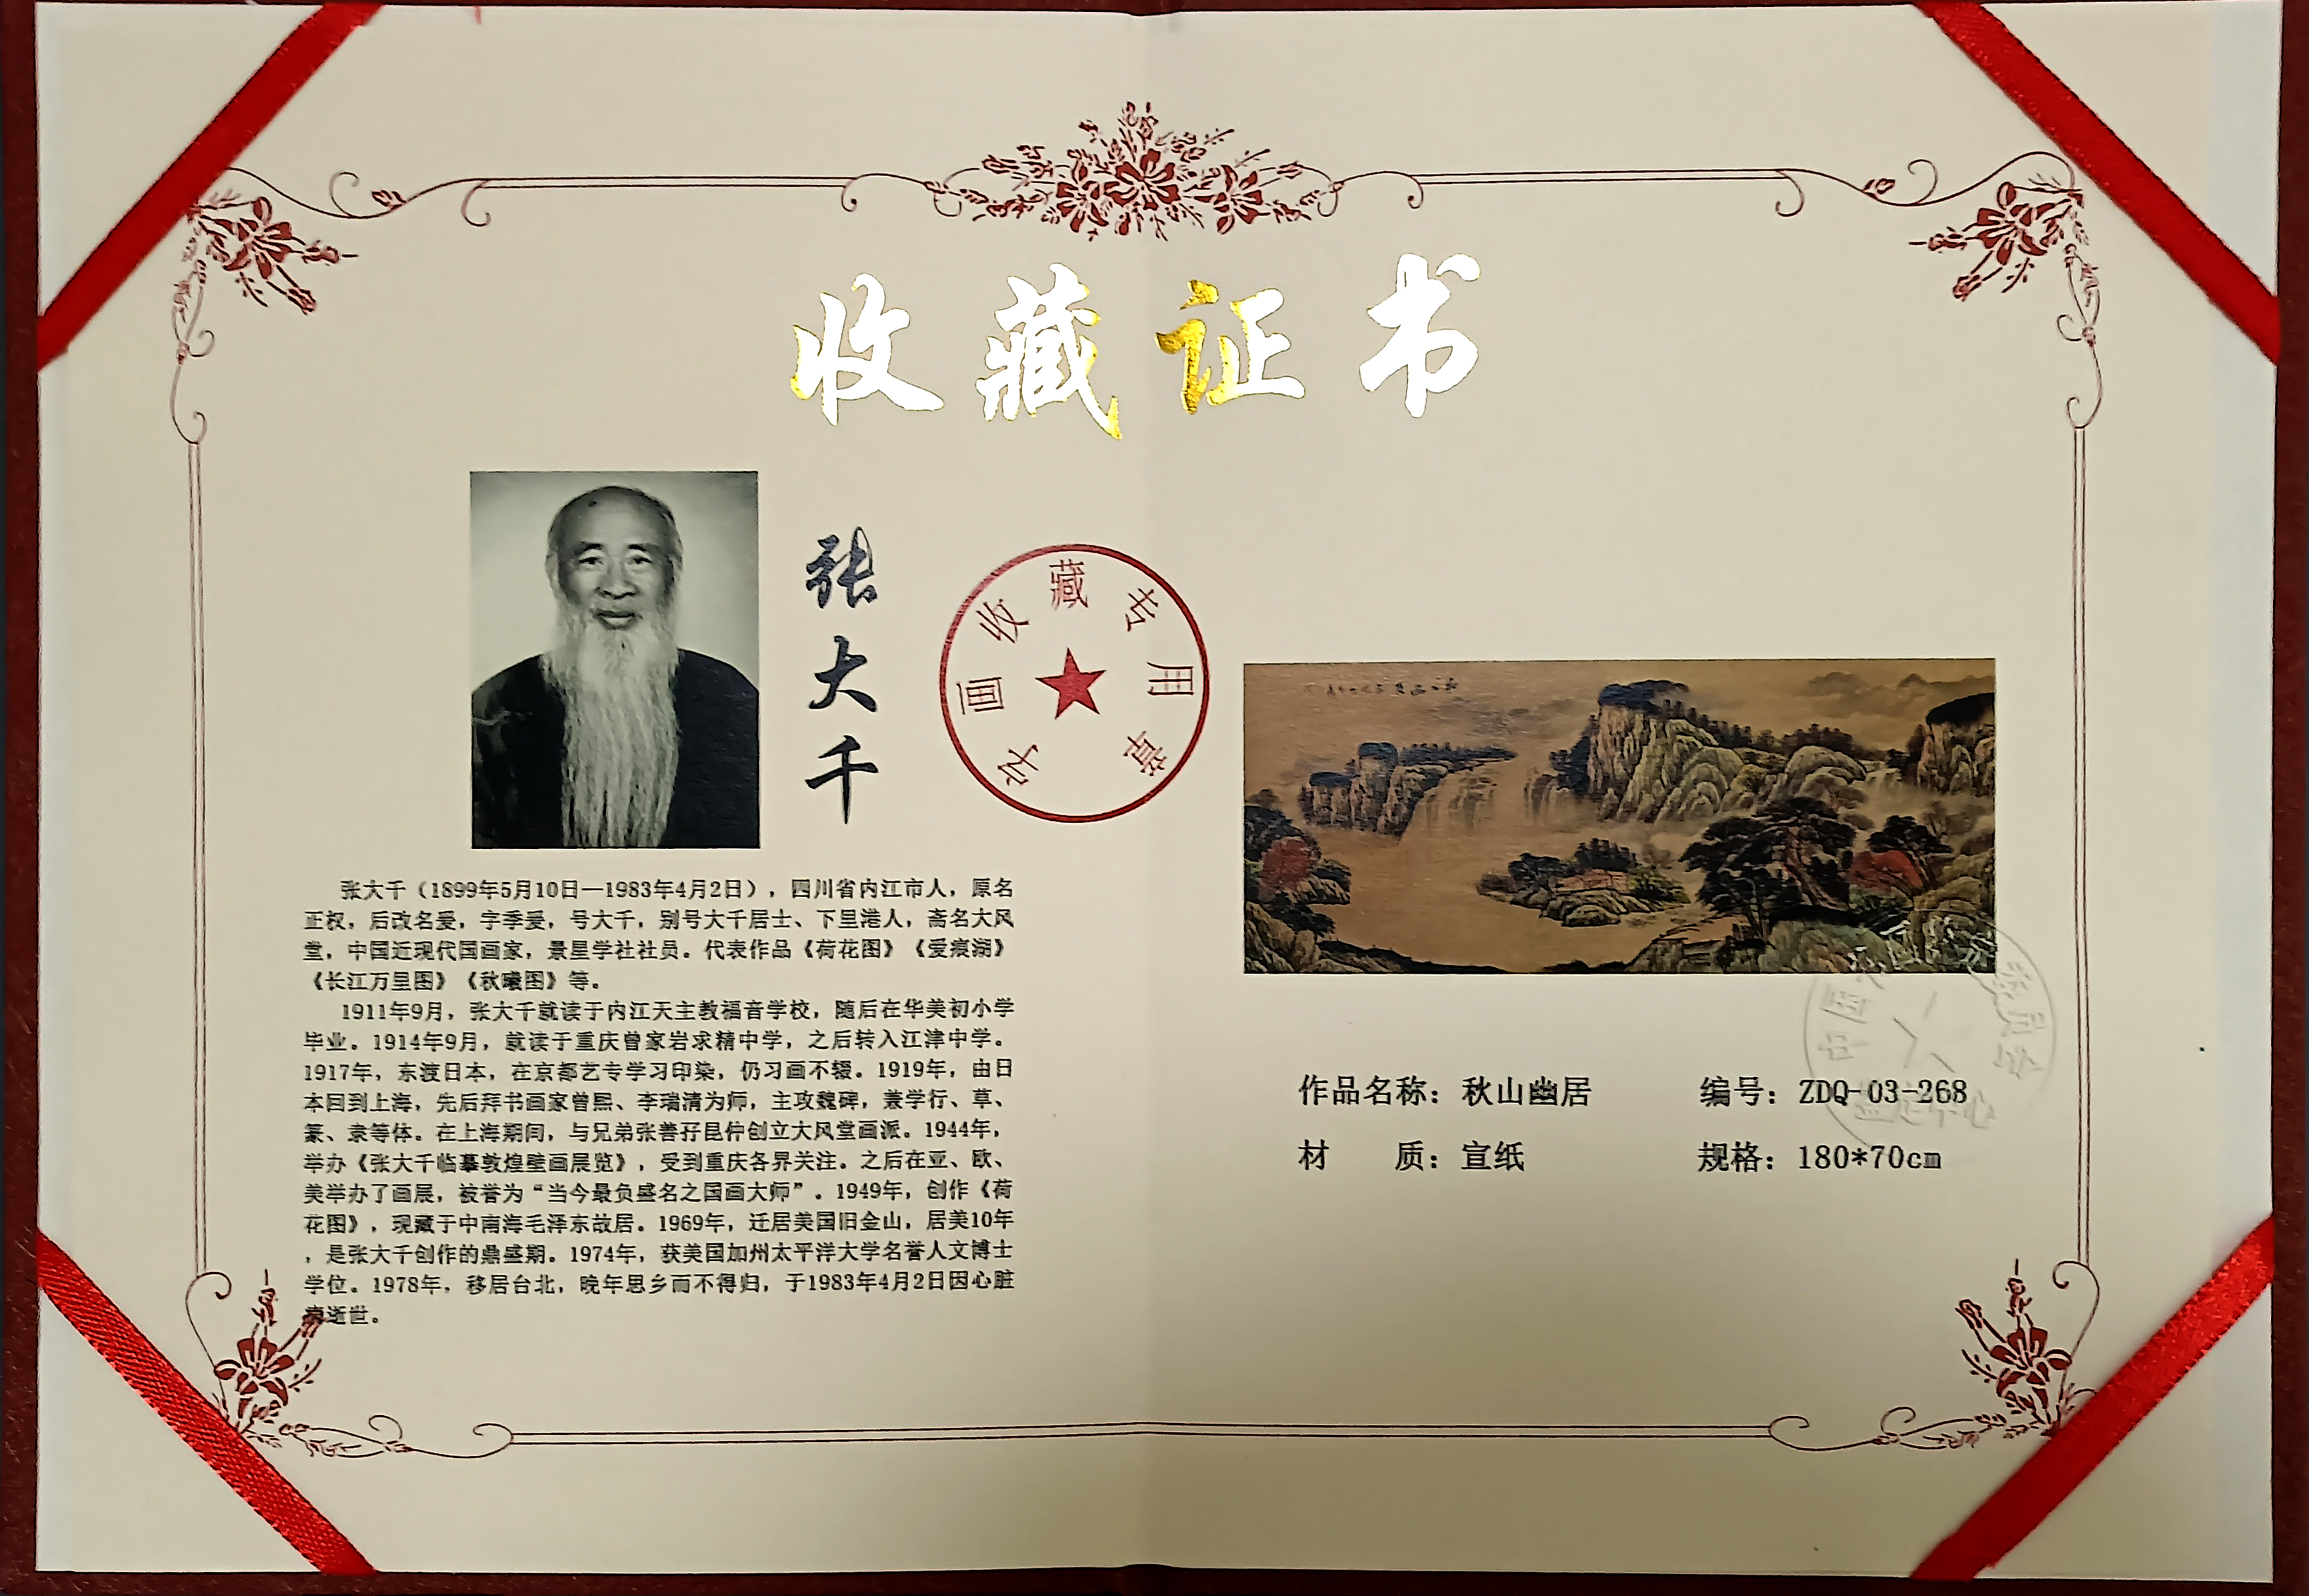 收藏证书
张大千
字画收藏专用章
张大千（1899年5月10日—1983年4月2日），四川省内江市人，原名
正权，后改名爰，字季爰，号大千，别号大千居士、下里港人，斋名大风
堂，中国近现代国画家，景星学社社员。代表作品《荷花图》《爱痕湖》
《长江万里图》《秋曦图》等。
1911年9月，张大千就读于内江天主教福音学校，随后在华美初小学
毕业。1914年9月，就读于重庆曾家岩求精中学，之后转入江津中学。
1917年，东渡日本，在京都艺专学习印染，仍习画不辍。1919年，由日
本回到上海，先后拜书画家曾熙、李瑞清为师，主攻魏碑，兼学行、草、
篆、隶等体。在上海期间，与兄弟张善孖昆仲创立大风堂画派。1944年，
举办《张大千临摹敦煌壁画展览》，受到重庆各界关注。之后在亚、欧、
美举办了画展，被誉为“当今最负盛名之国画大师”。1949年，创作《荷
花图》，现藏于中南海毛泽东故居。1969年，迁居美国旧金山，居美10年
，是张大千创作的鼎盛期。1974年，获美国加州太平洋大学名誉人文博士
学位。1978年，移居台北，晚年思乡而不得归，于1983年4月2日因心脏
病逝世。
作品名称：秋山幽居 编号：ZDQ-03-268
材 质：宣纸 规格：180*70cm